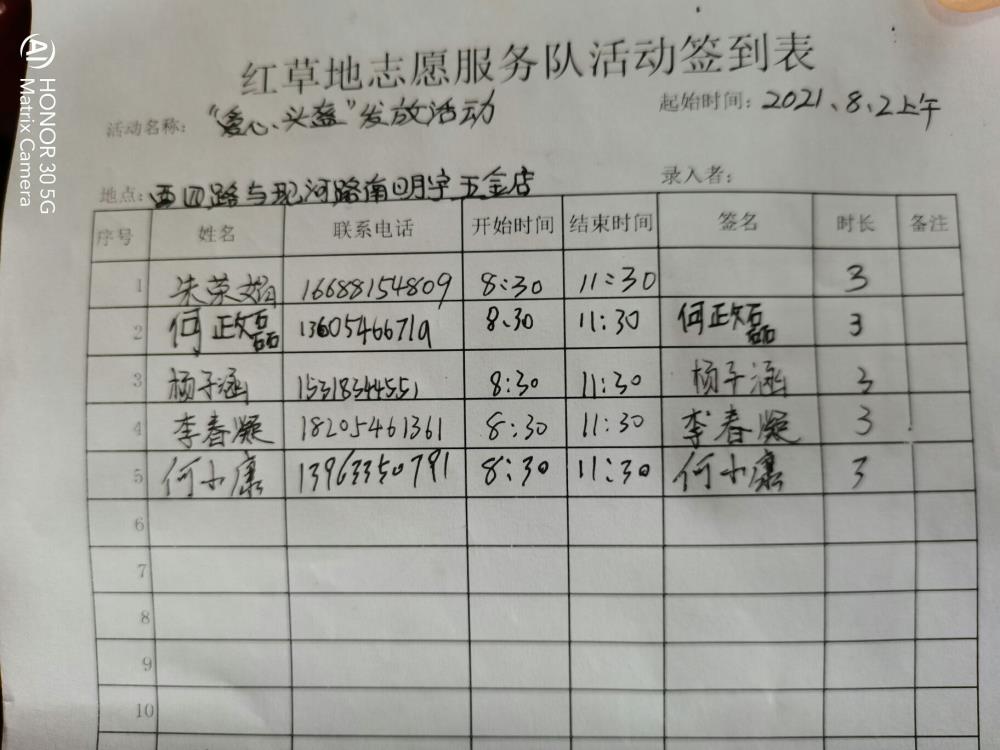 HONOR 30 5G
Matrix Camera
红草地志愿服务队活动签到表
活动名称：“爱心头盔”发放活动 起始时间：2021.8.2上午
地点：西四路与现河路南明宇五金店 录入者：
序号 姓名 联系电话 开始时间 结束时间 签名 时长 备注
1 朱荣娟 16688154809 8:30 11:30 3
2 何政磊 1360546671a 8:30 11:30 何政磊 3
3 杨子涵 15318344551 8:30 11:30 杨子涵 3
4 李春凝 18205461361 8:30 11:30 李春凝 3
5 何小康 13963350791 8:30 11:30 何小康 3
6
7
8
9
10